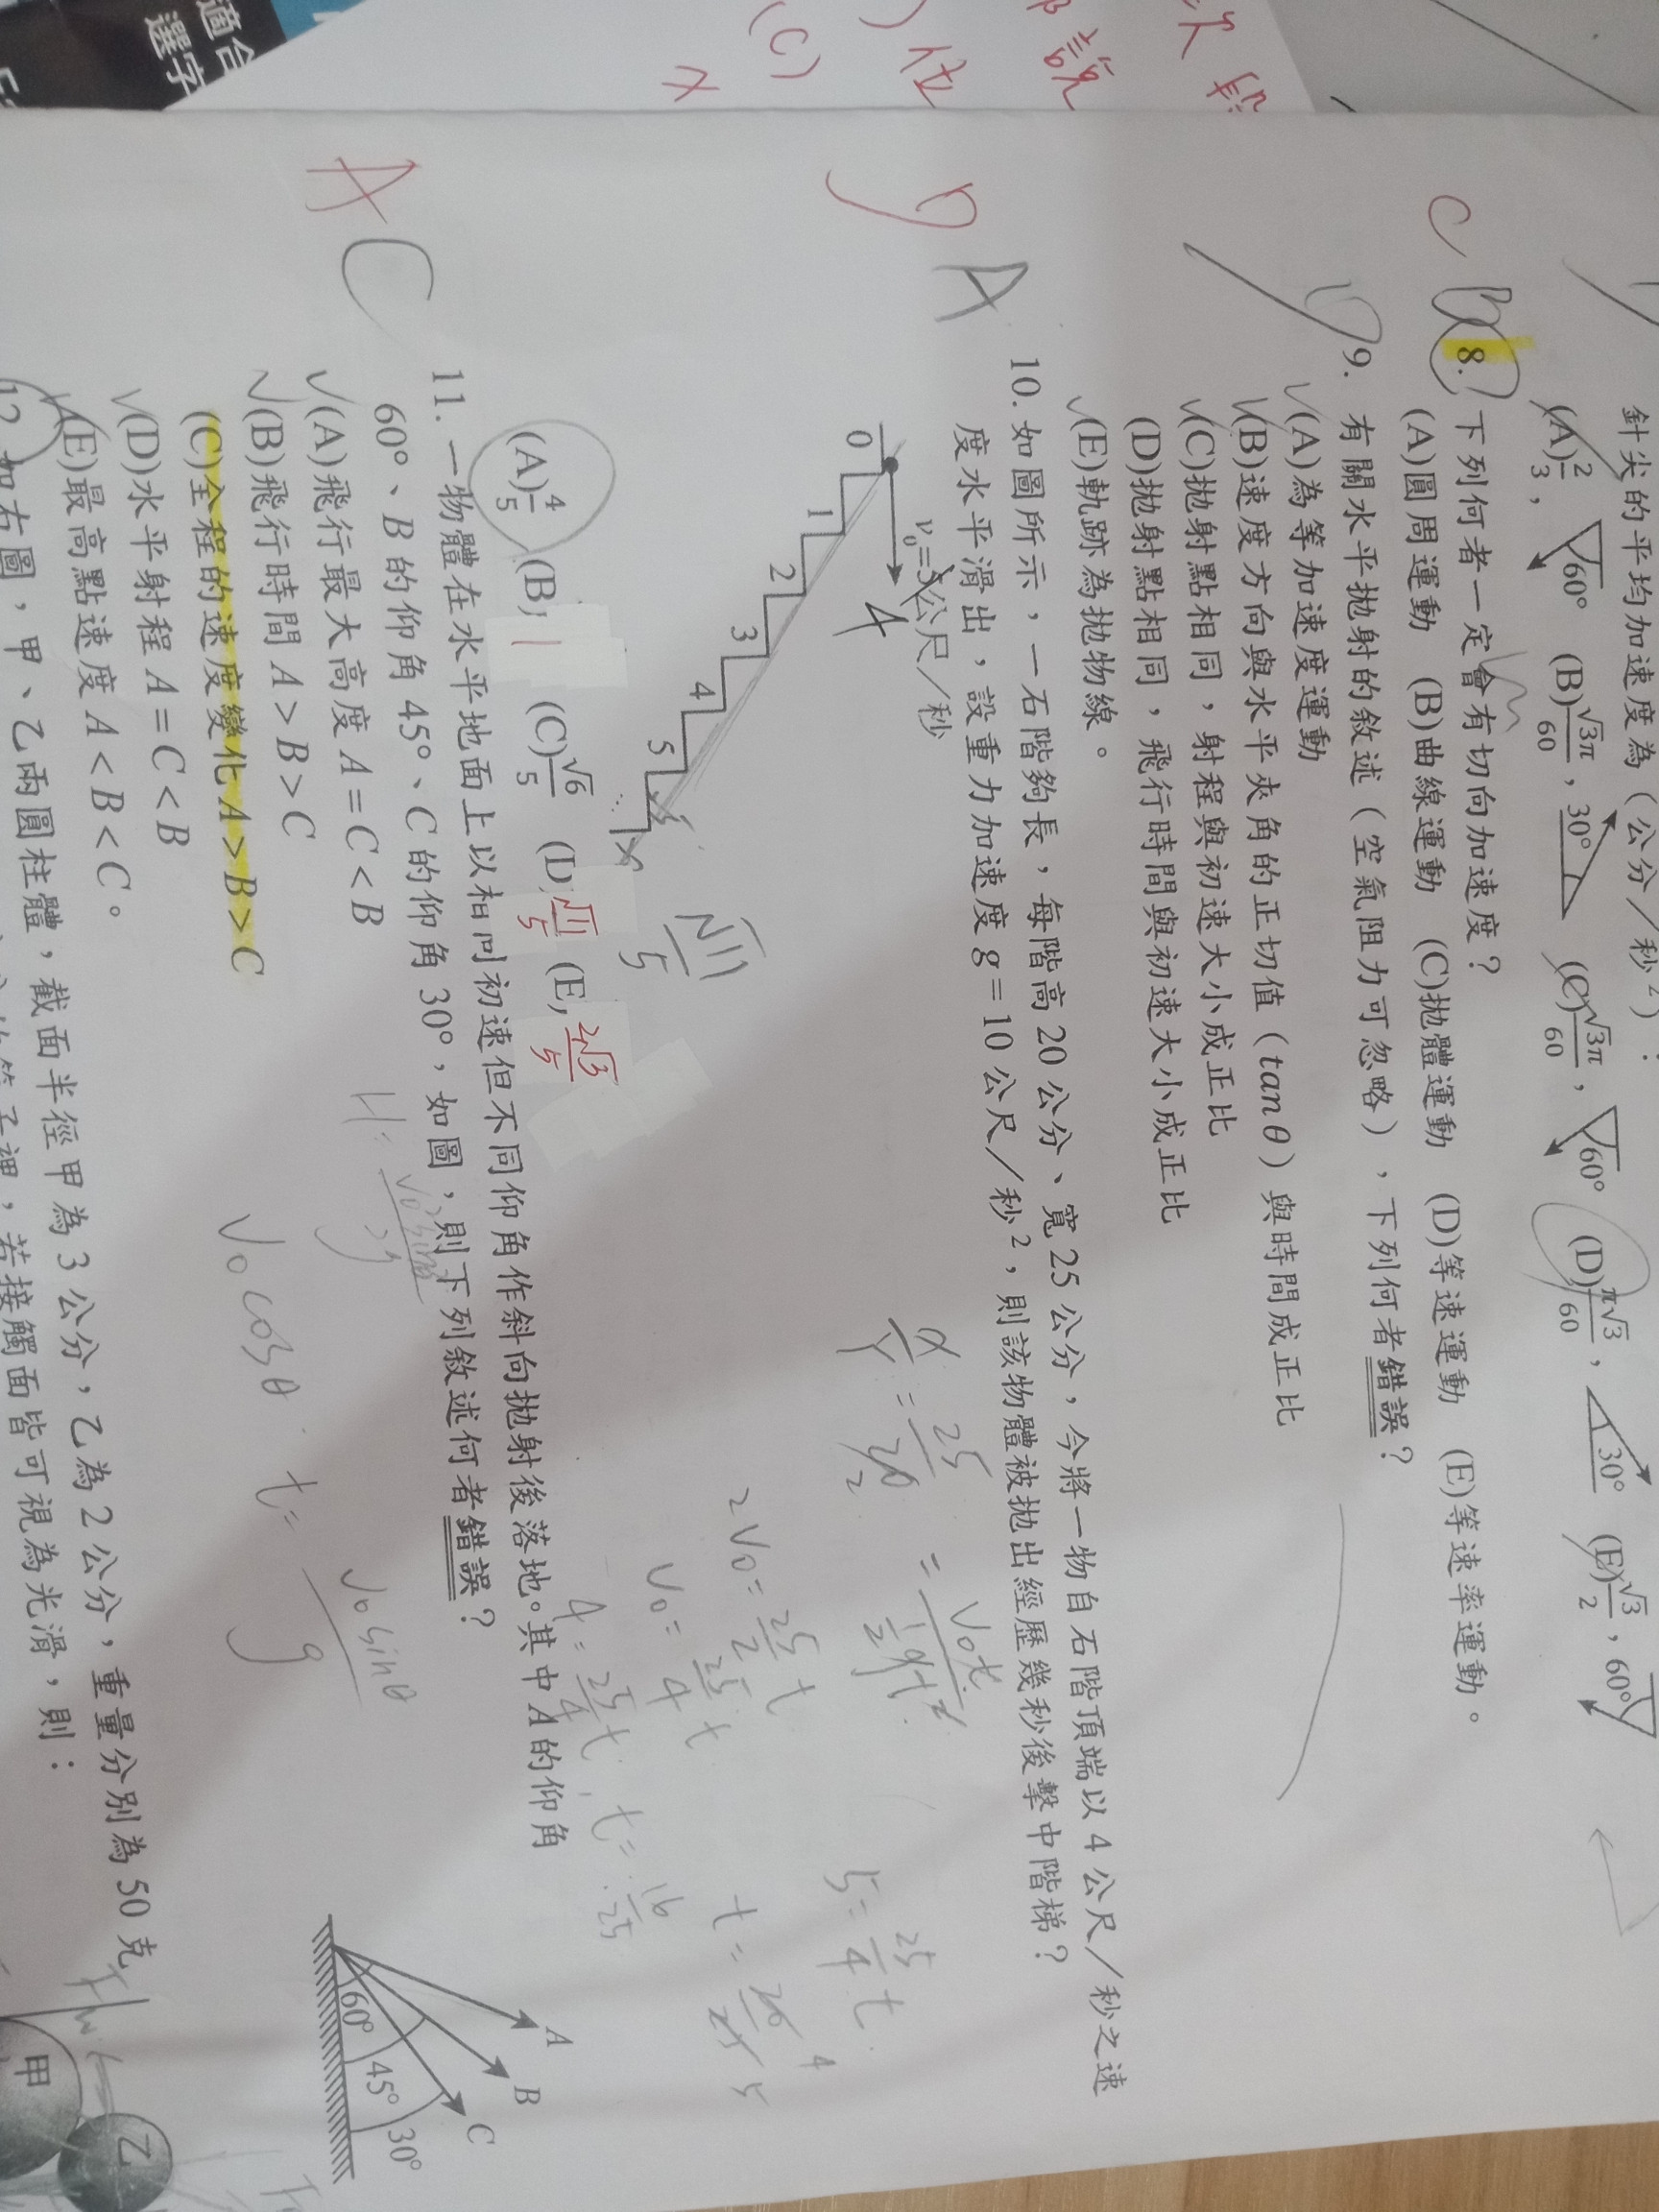 適合
選字
次 段
說
位
(C)
針尖的平均加速度為（公分／秒²）：
(A) 2/3， 60° (B) √3π/60， 30° (C) √3π/60， 60° (D) π√3/60， 30° (E) √3/2， 60°
C B
8. 下列何者一定會有切向加速度？
(A)圓周運動 (B)曲線運動 (C)拋體運動 (D)等速運動 (E)等速率運動。
9. 有關水平拋射的敘述（空氣阻力可忽略），下列何者錯誤？
(A)為等加速度運動
(B)速度方向與水平夾角的正切值（tanθ）與時間成正比
(C)拋射點相同，射程與初速大小成正比
(D)拋射點相同，飛行時間與初速大小成正比
(E)軌跡為拋物線。
D A
10. 如圖所示，一石階夠長，每階高 20 公分、寬 25 公分，今將一物自石階頂端以 4 公尺／秒之速
度水平滑出，設重力加速度 g＝10 公尺／秒²，則該物體被拋出經歷幾秒後擊中階梯？
v₀=5公尺／秒
4
0
1
2
3
4
5
x/y = 25/20 = v₀t / ½gt²
2v₀ = 25/2 t
v₀ = 25/4 t
4 = 25/4 t, t = 16/25
5 = 25/4 t
t = 20/25 4/5
√11/5
(A) 4/5 (B) 1 (C) √6/5 (D) √11/5 (E) 2√3/5
A C
11. 一物體在水平地面上以相同初速但不同仰角作斜向拋射後落地。其中 A 的仰角
60°、B 的仰角 45°、C 的仰角 30°，如圖，則下列敘述何者錯誤？
(A)飛行最大高度 A＝C＜B
(B)飛行時間 A＞B＞C
(C)全程的速度變化 A＞B＞C
(D)水平射程 A＝C＜B
(E)最高點速度 A＜B＜C。
A
B
C
60° 45° 30°
H =
v₀cosθ · t = v₀sinθ/g
12. 如右圖，甲、乙兩圓柱體，截面半徑甲為 3 公分，乙為 2 公分，重量分別為 50 克
筒子裡，若接觸面皆可視為光滑，則：
甲
乙